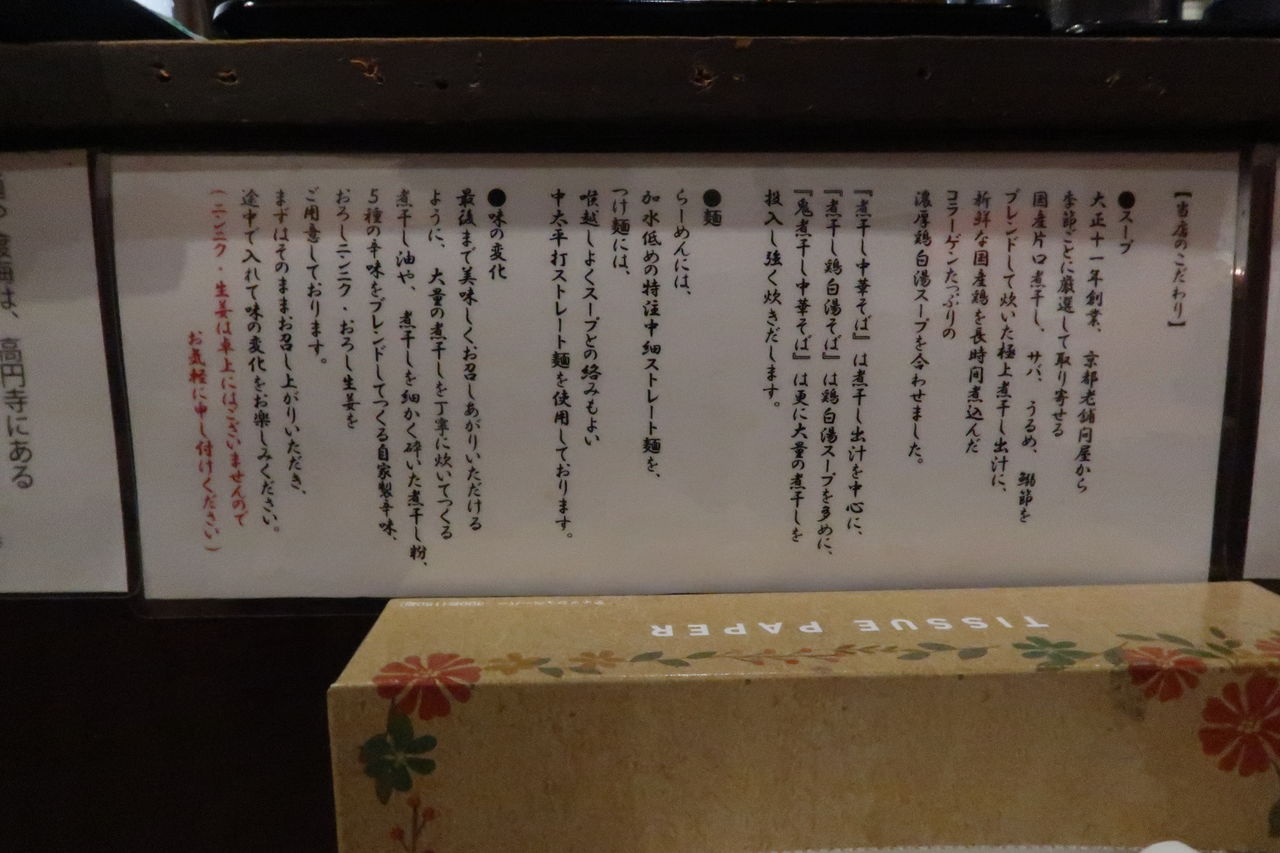 【当店のこだわり】
●スープ
大正十一年創業、京都老舗問屋から
季節ごとに厳選して取り寄せる
国産片口煮干し、サバ、うるめ、鰯節を
ブレンドして炊いた極上煮干し出汁に、
新鮮な国産鶏を長時間煮込んだ
コラーゲンたっぷりの
濃厚鶏白湯スープを合わせました。
『煮干し中華そば』は煮干し出汁を中心に、
『煮干し鶏白湯そば』は鶏白湯スープを多めに、
『鬼煮干し中華そば』は更に大量の煮干しを
投入し強く炊きだします。
●麺
らーめんには、
加水低めの特注中細ストレート麺を、
つけ麺には、
喉越しよくスープとの絡みもよい
中太平打ストレート麺を使用しております。
●味の変化
最後まで美味しくお召しあがりいただける
ように、大量の煮干しを丁寧に炊いてつくる
煮干し油や、煮干しを細かく砕いた煮干し粉、
5種の辛味をブレンドしてつくる自家製辛味、
おろしニンニク・おろし生姜を
ご用意しております。
まずはそのままお召し上がりいただき、
途中で入れて味の変化をお楽しみください。
（ニンニク・生姜は卓上にはございませんので
お気軽に申し付けください）
は、高円寺にある
TISSUE PAPER